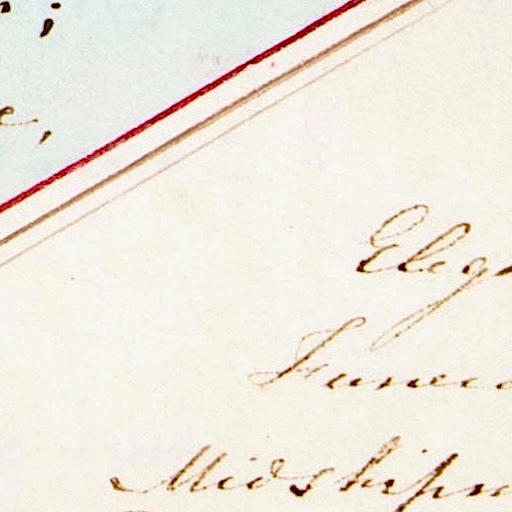 ;
e,
Eleg
Funera
Midshipm